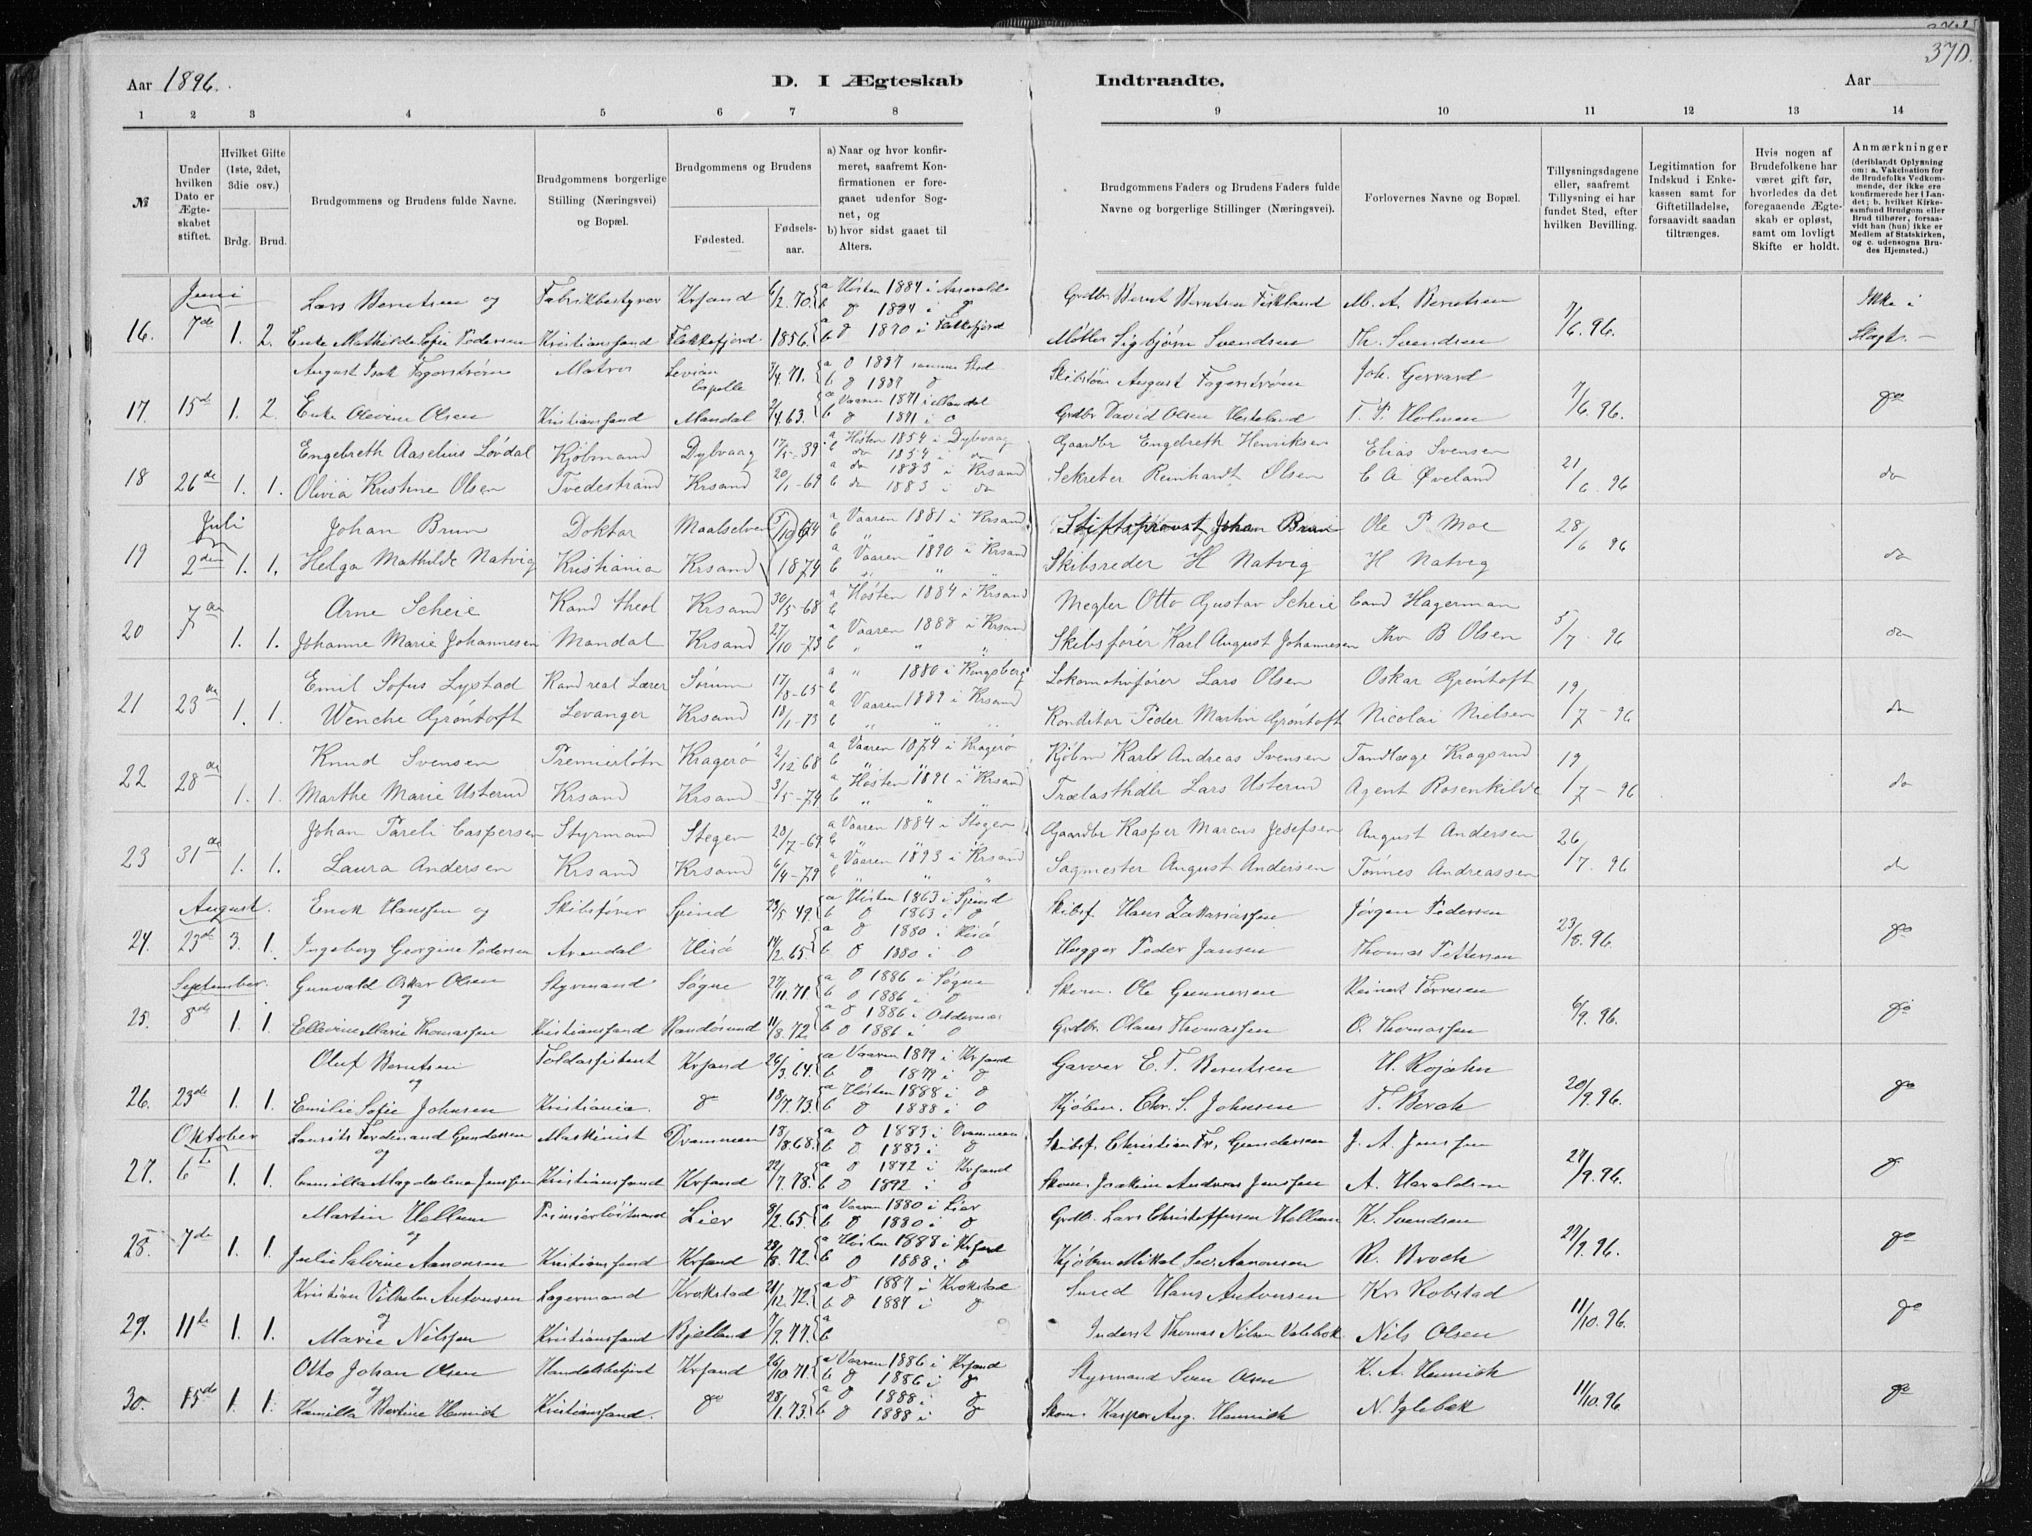 370.
Aar 1896.
D. I Ægteskab Indtraadte.
Aar
1 2 3 4 5 6 7 8 9 10 11 12 13 14
№
Under hvilken Dato er Ægteskabet stiftet.
Hvilket Gifte (1ste, 2det, 3die osv.)
Brdg. Brud.
Brudgommens og Brudens fulde Navne.
Brudgommens borgerlige Stilling (Næringsvei) og Bopæl.
Brudgommens og Brudens
Fødested. Fødselsaar.
a) Naar og hvor konfirmeret, saafremt Konfirmationen er foregaaet udenfor Sognet, og
b) hvor sidst gaaet til Alters.
Brudgommens Faders og Brudens Faders fulde Navne og borgerlige Stillinger (Næringsvei).
Forlovernes Navne og Bopæl.
Tillysningsdagene eller, saafremt Tillysning ei har fundet Sted, efter hvilken Bevilling.
Legitimation for Indskud i Enkekassen samt for Giftetilladelse, forsaavidt saadan tiltrænges.
Hvis nogen af Brudefolkene har været gift før, hvorledes da det foregaaende Ægteskab er opløst, samt om lovligt Skifte er holdt.
Anmærkninger (deriblandt Oplysning om: a. Vakcination for de Brudefolks Vedkommende, der ikke ere konfirmerede her i Landet; b. hvilket Kirkesamfund Brudgom eller Brud tilhører, forsaavidt han (hun) ikke er Medlem af Statskirken, og c. udensogns Brudes Hjemsted.)
Juni Lars Berntsen og Fabrikbestyrer Krsand 6/2. 70. a Høsten 1884 i Grdbr Bernt Berntsen Fiskland M. A. Berntsen Ikke i
b do 1894 i do
16. 7de 1. 2. Enke Mathilde Sofie Pedersen Kristianssand Flekkefjord 1856. a b do 1870 i Flekkefjord Møller Sigbjørn Svendsen Th. Svendsen 7/6. 96. Slægt.
August Isak Fagerstrøm Matros Levian Capelle 7/4. 71. Skibstøm August Fagerstrøm Joh. Gerrard
17. 15de 1. 2. Enke Olevine Olsen Kristianssand Mandal 2/4 63. a Vaaren 1871 i Mandal Grdbr David Olsen T. P. Holman 7/6. 96. do
Engebreth Aaselius Løvdal Kjøbmand Dybvaag 17/5-39 a Høsten 1854 i Dybvaag Gaardbr Engebreth Henriksen Elias Svensen
b do 1854 i do
18 26de 1. 1. Olivia Kristine Olsen Tvedestrand Krsand 20/1-69 a do 1883 i Krsand Sekretær Reinhardt Olsen C A Øveland 21/6. 96 do
b do 1883 i do
Juli Johan Brun Doktor Maalselven 5/10 64 a Vaaren 1881 i Krsand Stiftsprovst Johan Brun Ole P. Moe
19 2den 1. 1. Helga Mathilde Natvig Kristiania Krsand 1874 a Vaaren 1890 i Krsand Skibsreder H Natvig H Natvig 28/6 96 do
Arne Scheie Kand theol Krsand 30/5-68 a Høsten 1884 i Krsand Megler Otto Gustav Scheie Cand Hagerman
20 7de 1. 1. Johanne Marie Johannesen Mandal Krsand 27/10-73 a Vaaren 1888 i Krsand Skibsfører Karl August Johannesen Thv B Olsen 5/7-96 do
Emil Sofus Lystad Kand real Lærer Sørum 17/8-65 a " 1880 i Kongsberg Lokomotivfører Lars Olsen Oskar Grøntoft
21 23de 1. 1. Wenche Grøntoft Levanger Krsand 18/1-73 a Vaaren 1889 i Krsand Konditor Peder Martin Grøntoft Nicolai Nielsen 19/7-96 do
Knud Svensen Premierløtn Kragerø 2/12-68 a Vaaren 1874 i Kragerø Kjøbm Karl Andreas Svensen Tandlæge Kragsrud
22 28de 1. 1. Marthe Marie Usterud Krsand Krsand 3/5-74 a Høsten 1891 i Krsand Trælasthdlr Lars Usterud Agent Rosenkilde 19/7-96 do
Johan Pareli Caspersen Styrmand Stegen 20/7-69 a Vaaren 1884 i Stegen Gaardbr Kasper Marcus Josefsen August Andersen
23 31de 1. 1. Laura Andersen Krsand Krsand 6/4-79 a Vaaren 1893 i Krsand Sagmester August Andersen Tønnes Andreassen 26/7. 96 do
August. Enok Hanssen og Skibsfører Spind 23/5 49. a Høsten 1863 i Spind Skibsf. Hans Zakariassen Jørgen Pedersen
b do 1863 i do
24. 23de 3. 1. Ingeborg Georgine Pedersen Arendal Hisø 14/2 65. a do 1880 i Hisø Hugger Peder Jansen Thomas Pettersen 23/8. 96. do
b do 1880 i do
September. Gunvald Oskar Olsen og Styrmand Søgne 27/11. 71. a do 1886 i Søgne Skom. Ole Gunnersen Reinert Torresen
b do 1886 i do
25. 8de 1. 1. Ellevine Marie Thomassen Kristianssand Randøsund 11/8. 72. a do 1886 i Oddernes Grdbr. Olaus Thomassen O. Thomassen 6/9. 96. do
b do 1886 i do
Oluf Berntsen og Toldassistent Krsand 26/3. 64. a Vaaren 1879 i Krsand Garver E. T. Berntsen H. Rojahn
b do 1879 i do
26. 23de 1. 1. Emilie Sofie Johnsen Kristiania. do 18/7. 73. a Høsten 1888 i do Kjøbm. Chr. S. Johnsen T. Broch 20/9. 96. do
b do 1888 i do
Oktober Laurits Ferdinand Gundersen og Maskinist Drammen 18/8. 68. a do 1883 i Drammen Skibsf. Christian Fr. Gundersen J. A. Jenssen
b do 1883 i do
27. 6te 1. 1. Camilla Magdalena Jenssen Kristianssand Krsand 22/7. 78. a do 1892 i Krsand Skom. Joakim Andreas Jenssen A. Haraldsen 27/9. 96. do
b do 1892 i do
Martin Hellum og Premierløitnand Lier 8/2. 65. a Vaaren 1880 i Lier Grdbr. Lars Christoffersen Hellum K. Svendsen
b do 1880 i do
28. 7de 1. 1. Julie Salvine Aanonsen Kristianssand Krsand 28/8. 72. a Høsten 1888 i Krsand Kjøbm Mikal Sev. Aanonsen R. Broch 27/9. 96. do
b do 1888 i do
Kristian Vilhelm Antonsen og Lagermand Krokstad 21/12. 72. a do 1887 i Krokstad Smed Hans Antonsen Krs Robstad
b do 1887 i do
29. 11te 1. 1. Marie Nilssen Kristianssand Bjelland 7/9. 77. a b Inderst Thomas Nilsen Valebrok Nils Olsen 11/10. 96. do
Otto Johan Olsen og Handelsbetjent Krsand 26/10 71. a Vaaren 1886 i Krsand Styrmand Sven Olsen K. A. Hennich
b do 1886 i do
30. 15de 1. 1. Kamilla Bertine Hennich Kristianssand. do 28/1. 73. a do 1888 i do Skom. Kasper Aug. Hennich N. Iglebæk 11/10. 96. do
b do 1888 i do